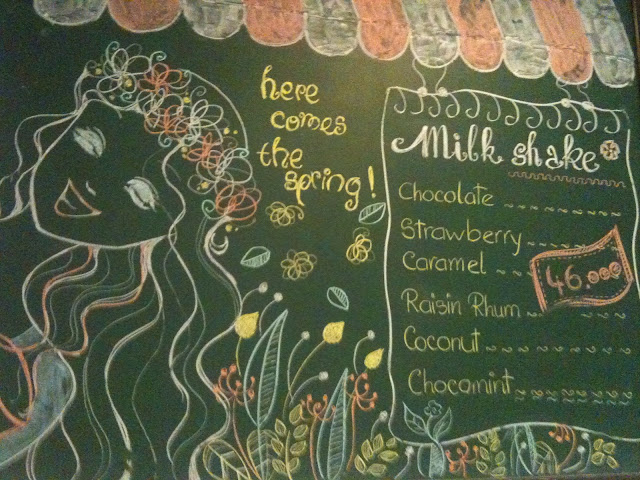 here
comes
the
spring!
Milk shake
Chocolate
Strawberry
Caramel
46.000
Raisin Rhum
Coconut
Chocomint